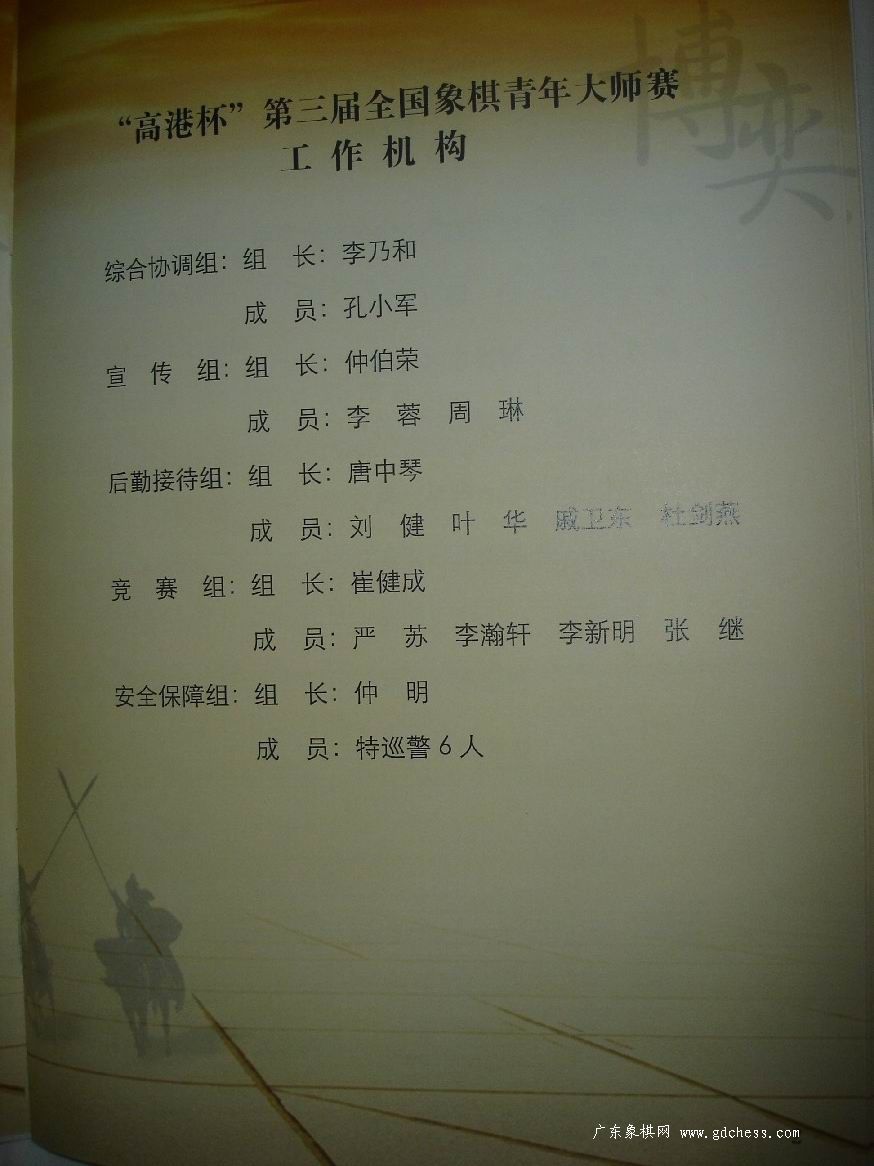 博
弈
“高港杯”第三届全国象棋青年大师赛
工作机构
综合协调组：组 长：李乃和
成 员：孔小军
宣 传 组：组 长：仲伯荣
成 员：李 蓉 周 琳
后勤接待组：组 长：唐中琴
成 员：刘 健 叶 华 戚卫东 杜剑燕
竞 赛 组：组 长：崔健成
成 员：严 苏 李瀚轩 李新明 张 继
安全保障组：组 长：仲 明
成 员：特巡警6人
广东象棋网 www.gdchess.com